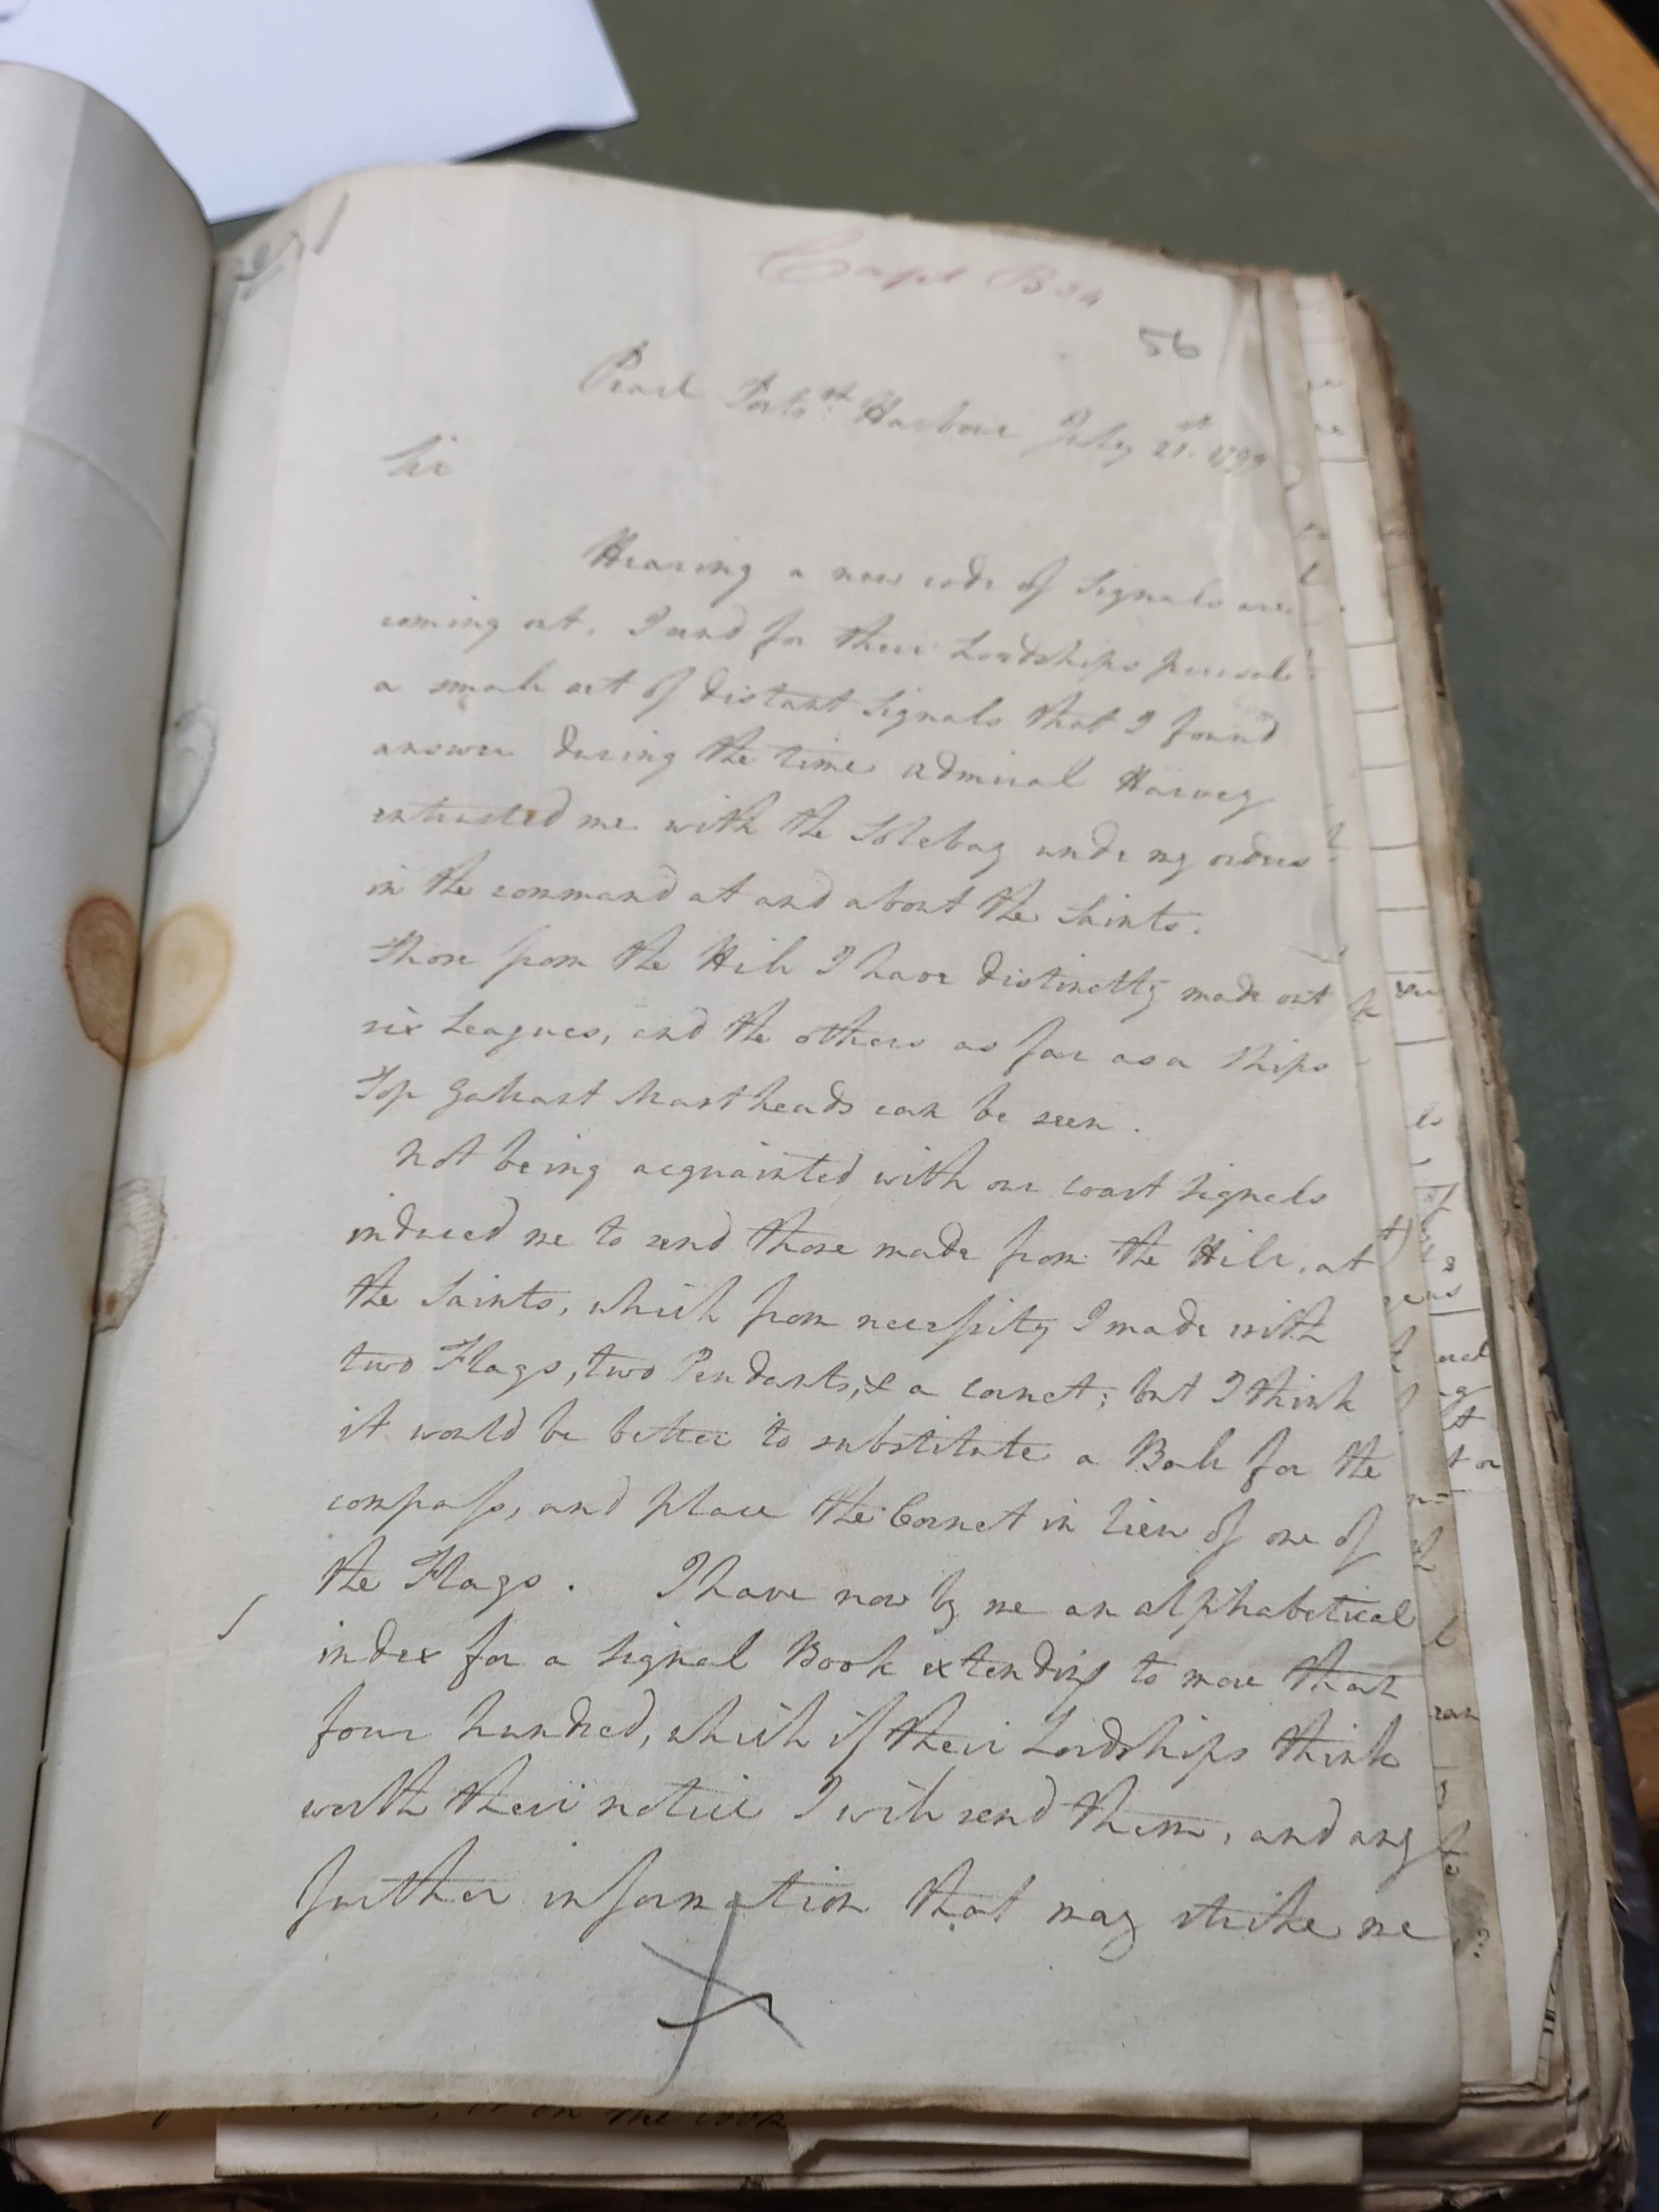 Capt B 34
56
Pearl Ports.º Harbour July 21st. 1799
Sir
Hearing a new code of Signals are
coming out, I send for their Lordships perusal
a small set of distant Signals that I found
answer during the time Admiral Harvey
entrusted me with the Solebay under my orders
in the command at and about the Saints.
Those from the Hill I have distinctly made out
six Leagues, and the others as far as a Ships
Top Gallant Mast heads can be seen.
Not being acquainted with our coast Signals
induced me to send those made from the Hill, at
the Saints, which from necessity I made with
two Flags, two Pendants, & a Cornet; but I think
it would be better to substitute a Ball for the
compass, and place the Cornet in lieu of one of
the Flags. I have now by me an alphabetical
index for a Signal Book extending to more than
four hundred, which if their Lordships think
worth their notice I will send them, and any
further information that may strike me